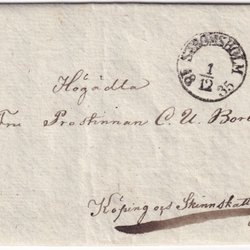 STRÖMSHOLM
1
12
18 35
Högädla
Fru Prostinnan C. U. Bore
Köping och Skinnskatt